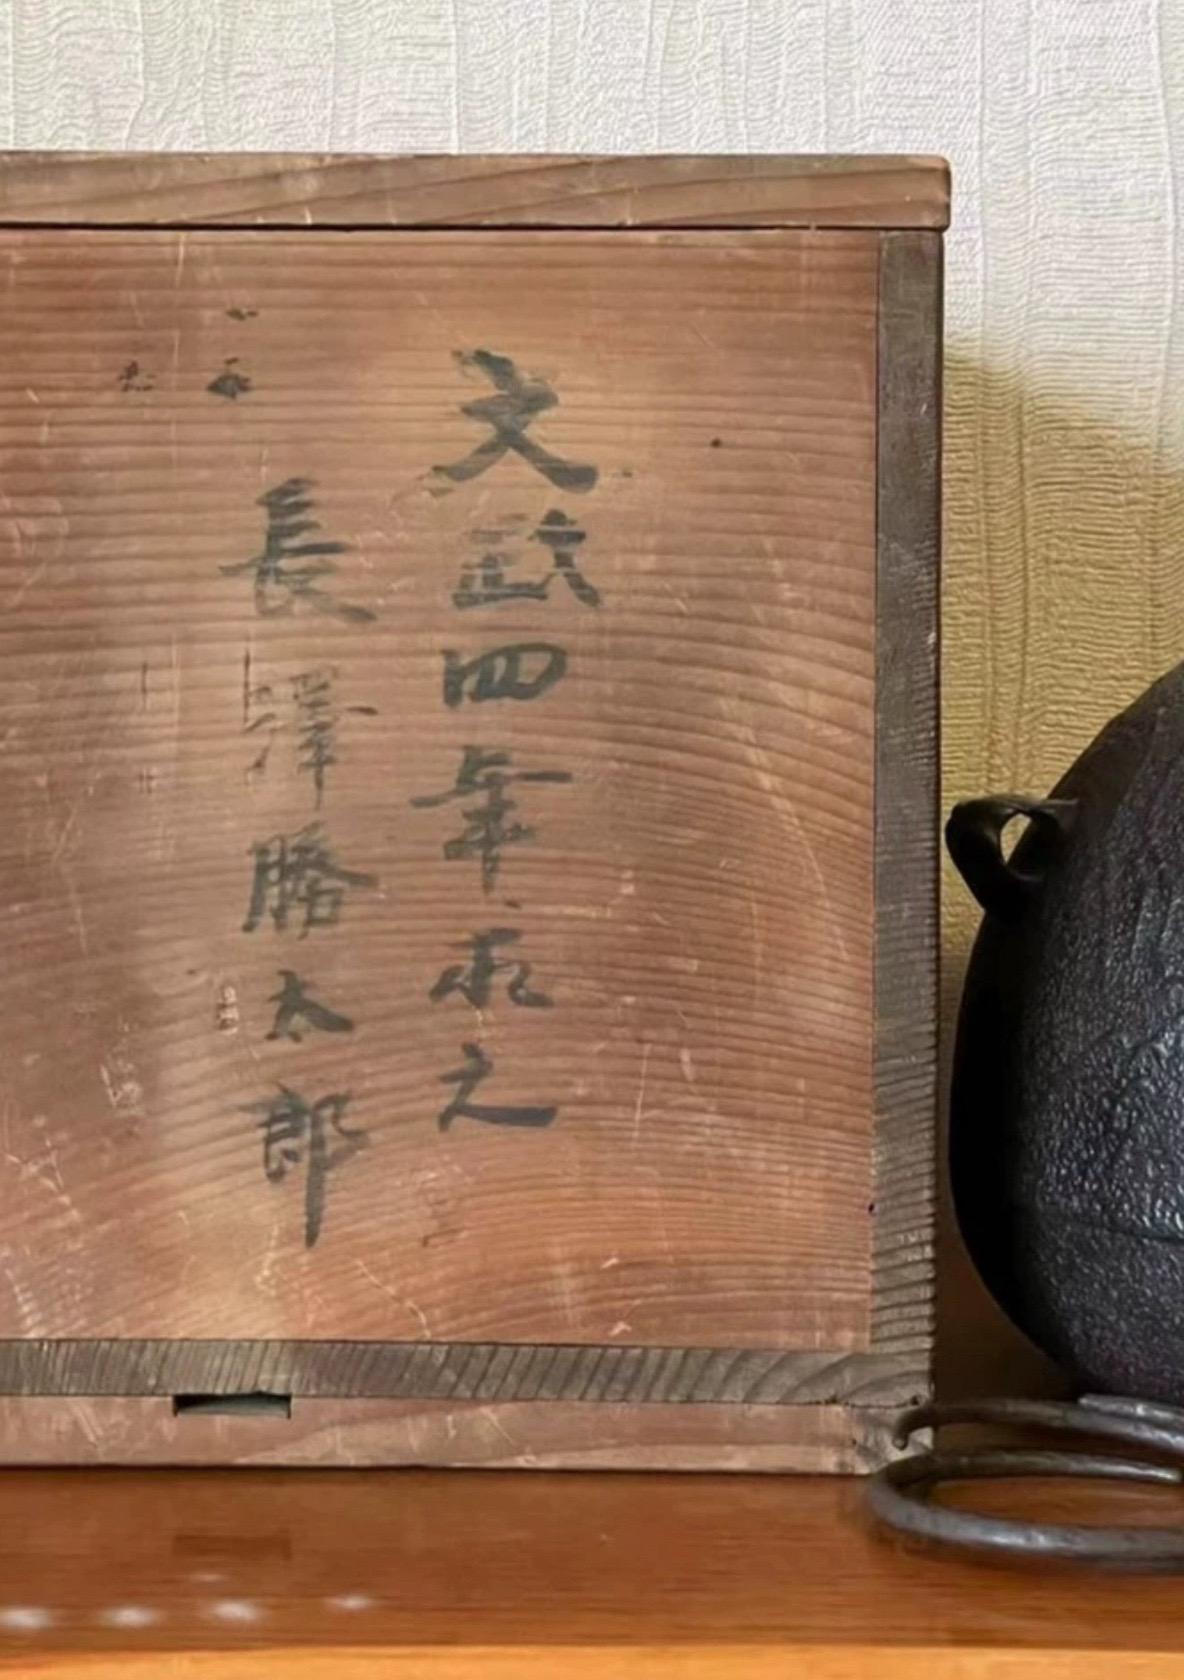 文政四年求之
長澤勝太郎